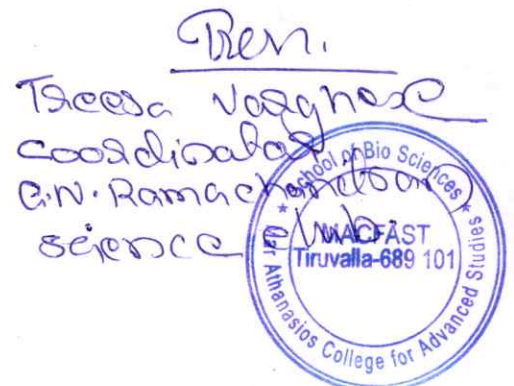 Treesa Varghese
Coordinator
G.N. Ramachandran
science club.
School of Bio Sciences
MACFAST
Tiruvalla-689 101
* Mar Athanasios College for Advanced Studies *